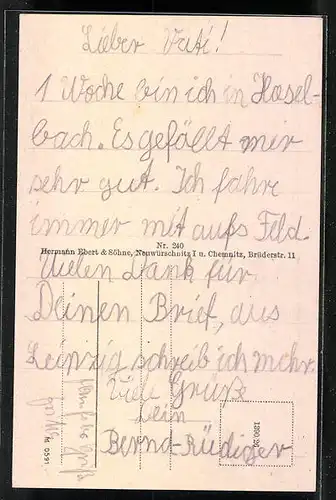 Lieber Vati!
1 Woche bin ich in Hasel-
bach. Es gefällt mir
sehr gut. Ich fahre
immer mit aufs Feld.
Nr. 240
Hermann Ebert & Söhne, Neuwürschnitz I u. Chemnitz, Brüderstr. 11
Vielen Dank für
Deinen Brief, aus
Leipzig schreib ich mehr.
Viele Grüße
Dein
Bernd-Rüdiger